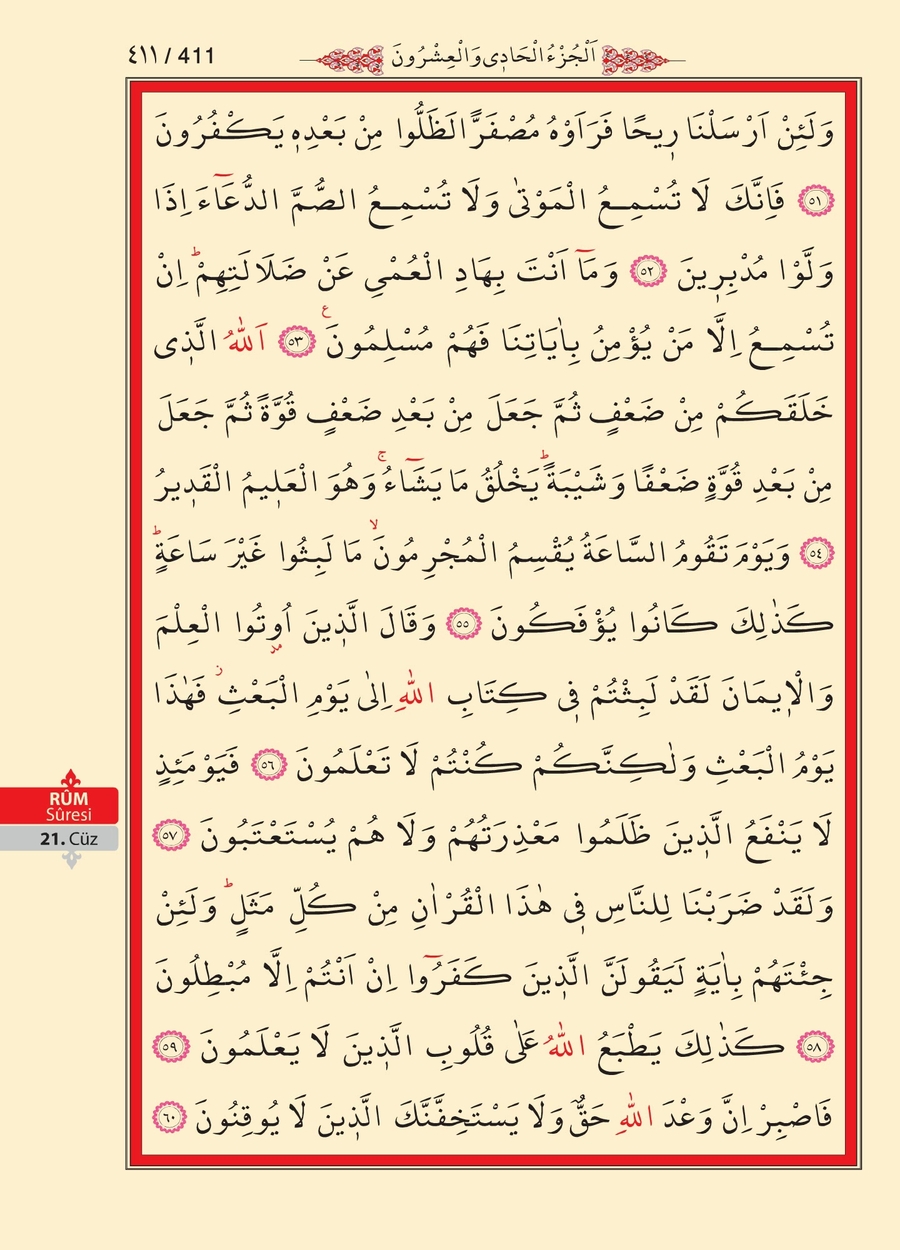 ٤١١ / 411
اَلْجُزْءُ الْحَادِى وَالْعِشْرُونَ
وَلَئِنْ اَرْسَلْنَا رِيحًا فَرَاَوْهُ مُصْفَرًّا لَظَلُّوا مِنْ بَعْدِهٖ يَكْفُرُونَ
﴿٥١﴾ فَاِنَّكَ لَا تُسْمِعُ الْمَوْتٰى وَلَا تُسْمِعُ الصُّمَّ الدُّعَٓاءَ اِذَا
وَلَّوْا مُدْبِرٖينَ ﴿٥٢﴾ وَمَٓا اَنْتَ بِهَادِ الْعُمْيِ عَنْ ضَلَالَتِهِمْؕ اِنْ
تُسْمِعُ اِلَّا مَنْ يُؤْمِنُ بِاٰيَاتِنَا فَهُمْ مُسْلِمُونَ ع ﴿٥٣﴾ اَللّٰهُ الَّذٖى
خَلَقَكُمْ مِنْ ضَعْفٍ ثُمَّ جَعَلَ مِنْ بَعْدِ ضَعْفٍ قُوَّةً ثُمَّ جَعَلَ
مِنْ بَعْدِ قُوَّةٍ ضَعْفًا وَشَيْبَةًؕ يَخْلُقُ مَا يَشَٓاءُۚ وَهُوَ الْعَلٖيمُ الْقَدٖيرُ
﴿٥٤﴾ وَيَوْمَ تَقُومُ السَّاعَةُ يُقْسِمُ الْمُجْرِمُونَۙ مَا لَبِثُوا غَيْرَ سَاعَةٍؕ
كَذٰلِكَ كَانُوا يُؤْفَكُونَ ﴿٥٥﴾ وَقَالَ الَّذٖينَ اُو۫تُوا الْعِلْمَ
وَالْاٖيمَانَ لَقَدْ لَبِثْتُمْ فٖى كِتَابِ اللّٰهِ اِلٰى يَوْمِ الْبَعْثِؗ فَهٰذَا
يَوْمُ الْبَعْثِ وَلٰكِنَّكُمْ كُنْتُمْ لَا تَعْلَمُونَ ﴿٥٦﴾ فَيَوْمَئِذٍ
لَا يَنْفَعُ الَّذٖينَ ظَلَمُوا مَعْذِرَتُهُمْ وَلَا هُمْ يُسْتَعْتَبُونَ ﴿٥٧﴾
وَلَقَدْ ضَرَبْنَا لِلنَّاسِ فٖى هٰذَا الْقُرْاٰنِ مِنْ كُلِّ مَثَلٍؕ وَلَئِنْ
جِئْتَهُمْ بِاٰيَةٍ لَيَقُولَنَّ الَّذٖينَ كَفَرُٓوا اِنْ اَنْتُمْ اِلَّا مُبْطِلُونَ
﴿٥٨﴾ كَذٰلِكَ يَطْبَعُ اللّٰهُ عَلٰى قُلُوبِ الَّذٖينَ لَا يَعْلَمُونَ ﴿٥٩﴾
فَاصْبِرْ اِنَّ وَعْدَ اللّٰهِ حَقٌّ وَلَا يَسْتَخِفَّنَّكَ الَّذٖينَ لَا يُوقِنُونَ ﴿٦٠﴾
RÛM
Sûresi
21. Cüz